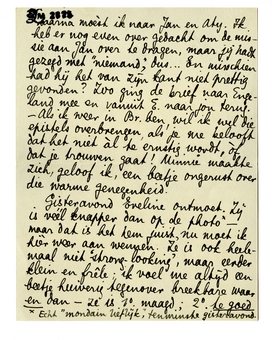 M 2828
Daarna moest ik naar Jan en Aty. Ik
heb er nog even over gedacht om de mis-
sie aan Jan over te dragen, maar jij hadt
gezegd met "niemand", dus... En misschien
had hij het van zijn kant niet prettig
gevonden? Zoo ging de brief naar Enge-
land mee en vanuit E. naar jou terug.
- Als ik weer in Br. ben, wil ik wel die
epistels overbrengen, als je me belooft
dat het niet àl te ernstig wordt, of
dat je trouwen gaat! Minnie maakte
zich, geloof ik, een beetje ongerust over
die warme genegenheid.
Gisteravond Eveline ontmoet. Zij
is véél knapper dan op de photo*
maar dat is het hem juist, nu moet ik
hier weer aan wennen. Ze is ook heele-
maal niet strong-looking, maar eerder
klein en frêle; ik voel me altijd een
beetje huiverig tegenover breekbare waar
en dan - ze is 1º. maagd; 2º. te goed
* Echt "mondain lieflijk", tenminste gisteravond.